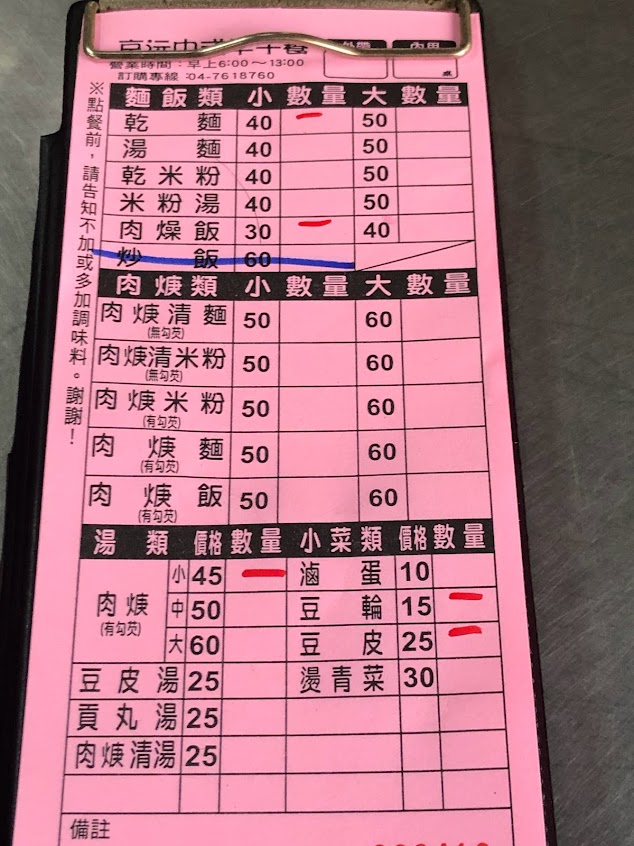 營業時間：早上6:00～13:00
訂購專線：04-7618760
※點餐前，請告知不加或多加調味料。謝謝！
麵飯類 小 數量 大 數量
乾麵 40 一 50
湯麵 40 50
乾米粉 40 50
米粉湯 40 50
肉燥飯 30 一 40
炒飯 60
肉焿類 小 數量 大 數量
肉焿清麵 50 60
(無勾芡)
肉焿清米粉 50 60
(無勾芡)
肉焿米粉 50 60
(有勾芡)
肉焿麵 50 60
(有勾芡)
肉焿飯 50 60
(有勾芡)
湯類 價格 數量 小菜類 價格 數量
肉焿 小 45 一 滷蛋 10
(有勾芡) 中 50 豆輪 15 一
大 60 豆皮 25 一
豆皮湯 25 燙青菜 30
貢丸湯 25
肉焿清湯 25
備註